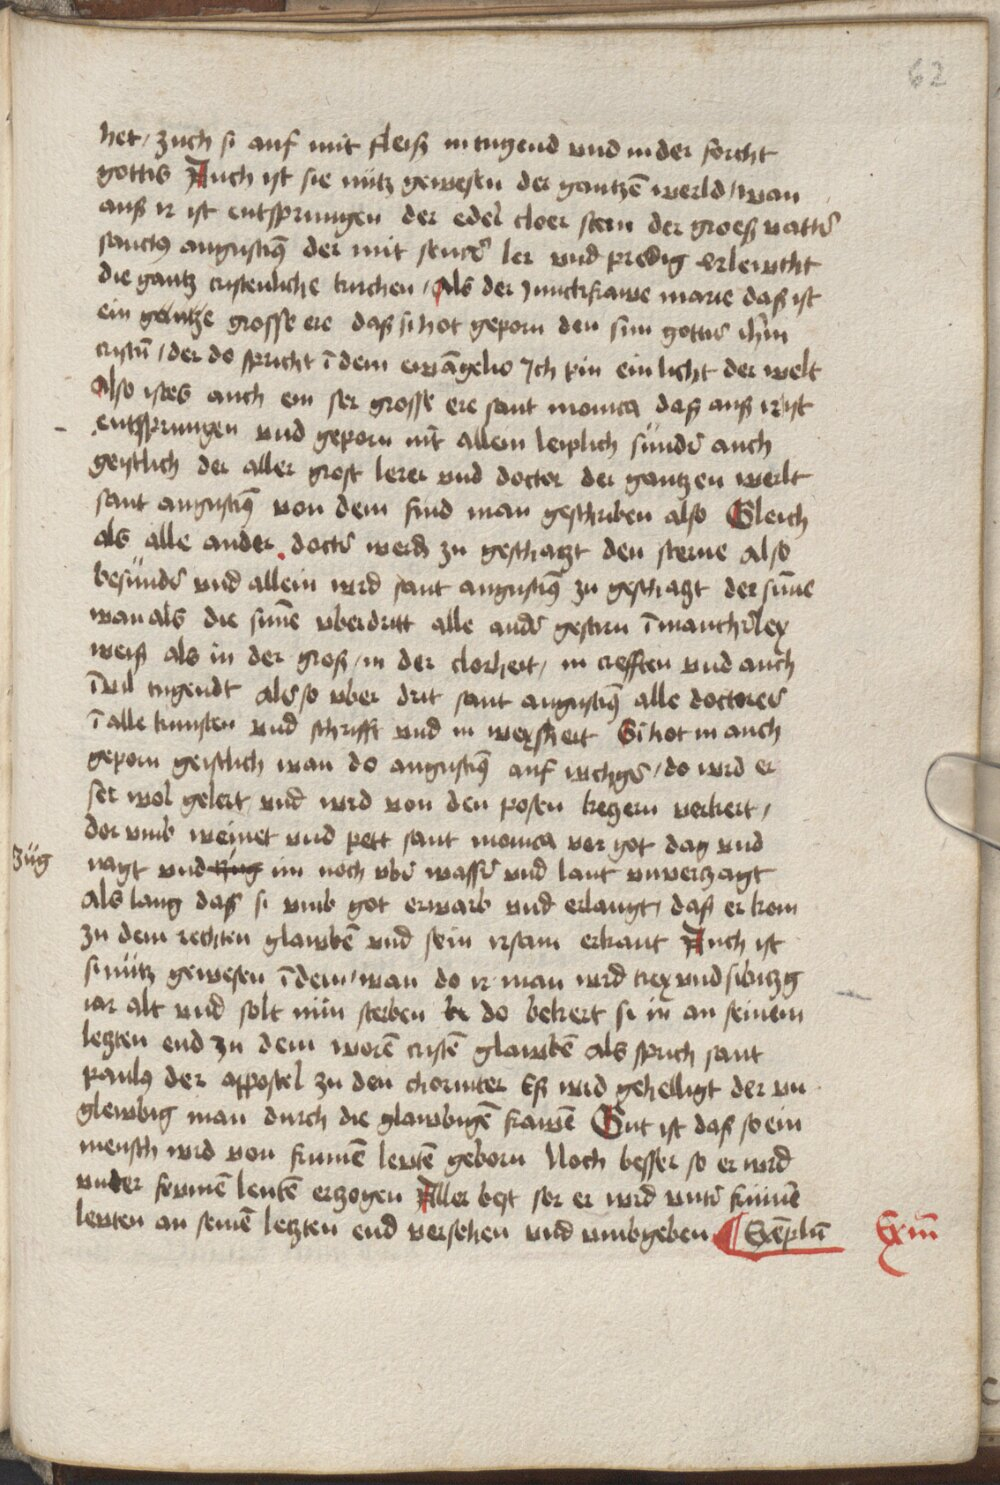 62
het / zuch si auf mit fleiß in tugend vnd in der forcht
gottis Auch ist sie nütz gewesen der gantzē werld / wan
auß ir ist entsprungen der edel cloer stern der groeß vattr̄
sanctꝰ augustinꝰ der mit seinr̄ ler vnd predig erlewtht
die gantz cristenliche kirchen / Als der junckfrawe marie daß ist
ein gantze grosse ere daß si hot geporn den sun gottis ih̄m
cristū / der do spricht ī dem ewāgelio Ich pin ein licht der welt
Also ist es auch ein ser grosse ere sant monica daß auß ir ist
entsprungen vnd geporn nit allein leiplich sündr̄ auch
geistlich der aller grost lerer vnd doctor der gantzen werlt
sant augustinꝰ von dem find man geschriben also Gleich
als alle ander doctr̄ werdn̄ zu geschatzt den sterne also
besundr̄ vnd allein wird sant augustinꝰ zu geschatzt der sūne
wan als die sunē vberdritt alle andr̄ gestirn ī manchr̄ley
weiß als in der groß / in der clorheit / in crefften vnd auch
ī vil tugendt also vber drit sant augustinꝰ alle doctores
ī alle kunsten vnd schrifft vnd in weysheit Si hot in auch
geporn geistlich wan do augustinꝰ auf wchgs / do wrd er
ser wol gelert / vnd wrd von den posen ketzern verkert /
dor vmb weinet vnd pett sant monica vor got dag vnd
züg
nagt vnd züg im noch vbr̄ wassr̄ vnd lant vnverzagt
als lang daß si vmb got erwarb vnd erlangt / daß er kom
zu dem rechten glawbē vnd sein irsam erkant Auch ist
si nütz gewesen ī dem / wan do ir man wrd trey vnd sibtzg
iar alt vnd solt nün sterben do bekert si in an seinem
letzten end zu dem worē cristē glawbē als sprich sant
paulꝰ der appostel zu den chorinter Eß wird geheiligt der vn
glewbig man durch die glawbigē frawē Gut ist daß so ein
mensch wrd von frumē lewtē geborn Noch besser so er wird
vnder frumē leutē erzogen Aller best sor er wird vntr̄ frumē
lewten an seinē letzten end versehen vnd vmbgeben ¶ Exēplū